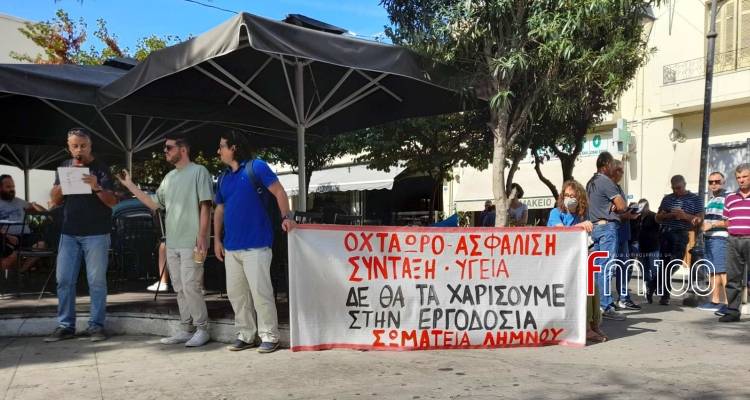 ΟΧΤΑΩΡΟ-ΑΣΦΑΛΙΣΗ
ΣΥΝΤΑΞΗ·ΥΓΕΙΑ
ΔΕ ΘΑ ΤΑ ΧΑΡΙΣΟΥΜΕ
ΣΤΗΝ ΕΡΓΟΔΟΣΙΑ
ΣΩΜΑΤΕΙΑ ΛΗΜΝΟΥ
Fm100
ΜΑΚΕΙΟ